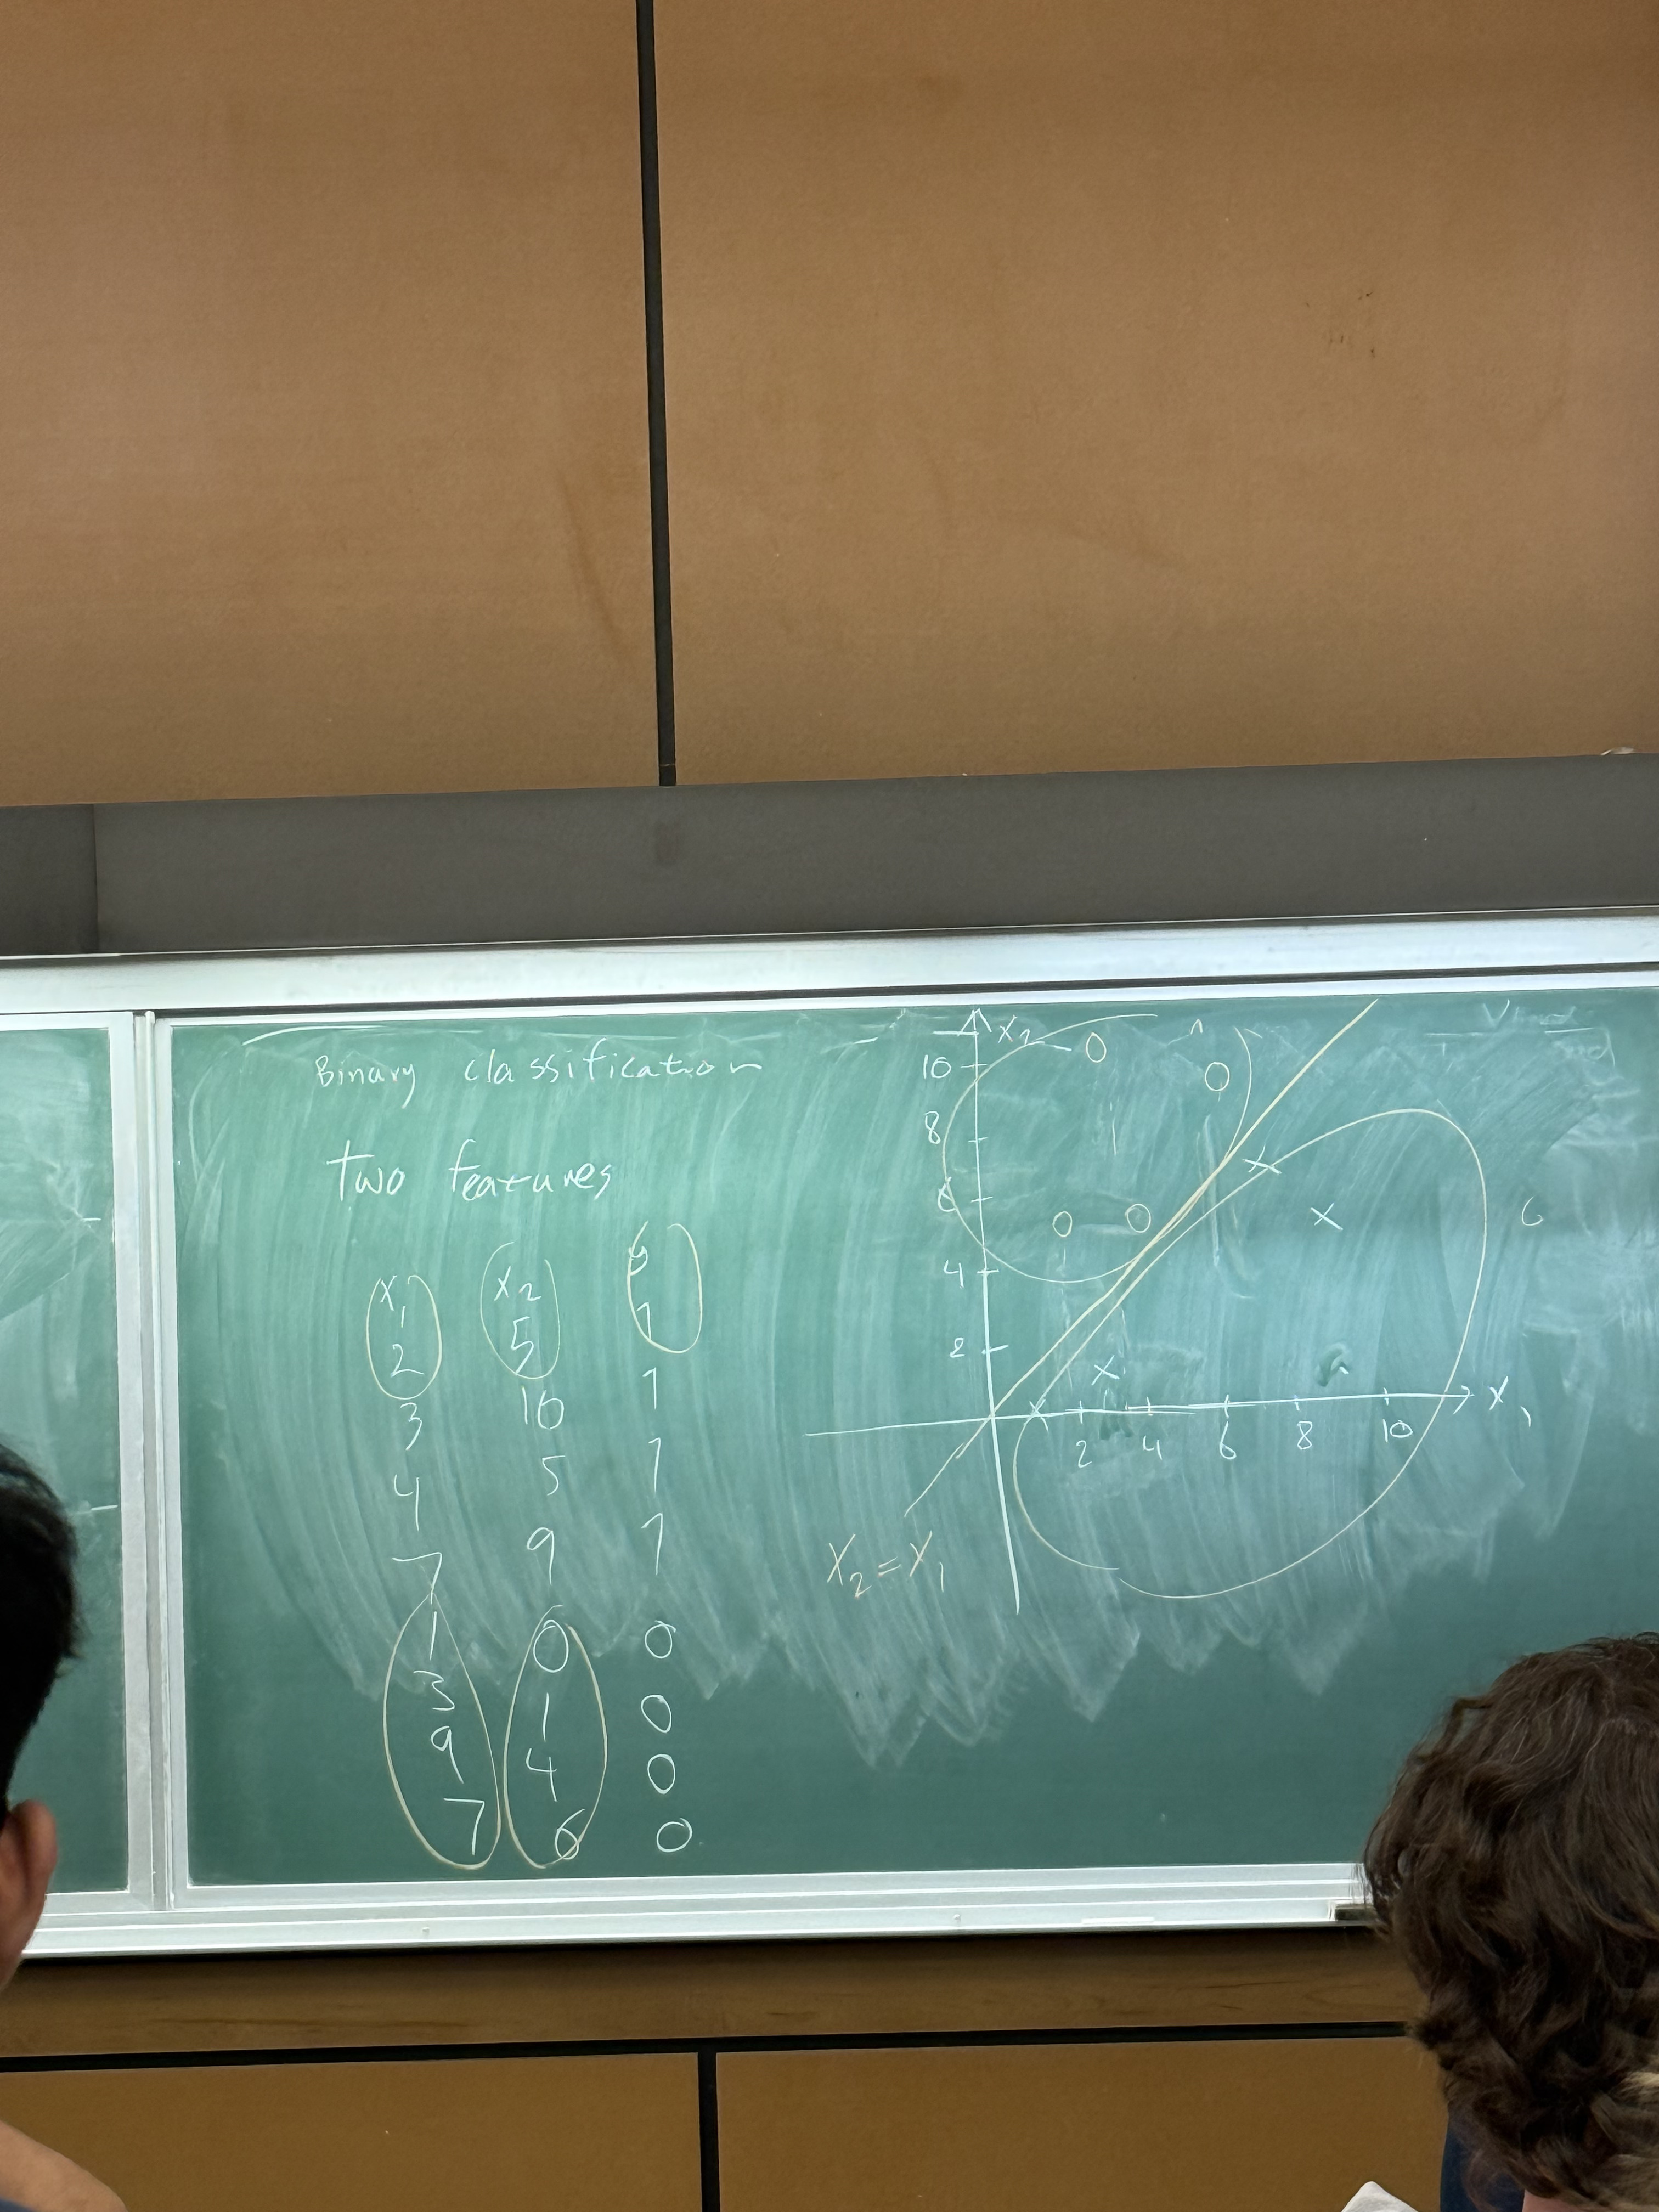 Binary classification
two features
x1 x2 y
2 5 1
3 10 1
4 5 1
7 9 1
1 0 0
3 1 0
9 4 0
7 6 0
x2
10
8
6
4
2
2 4 6 8 10 x1
x2 = x1